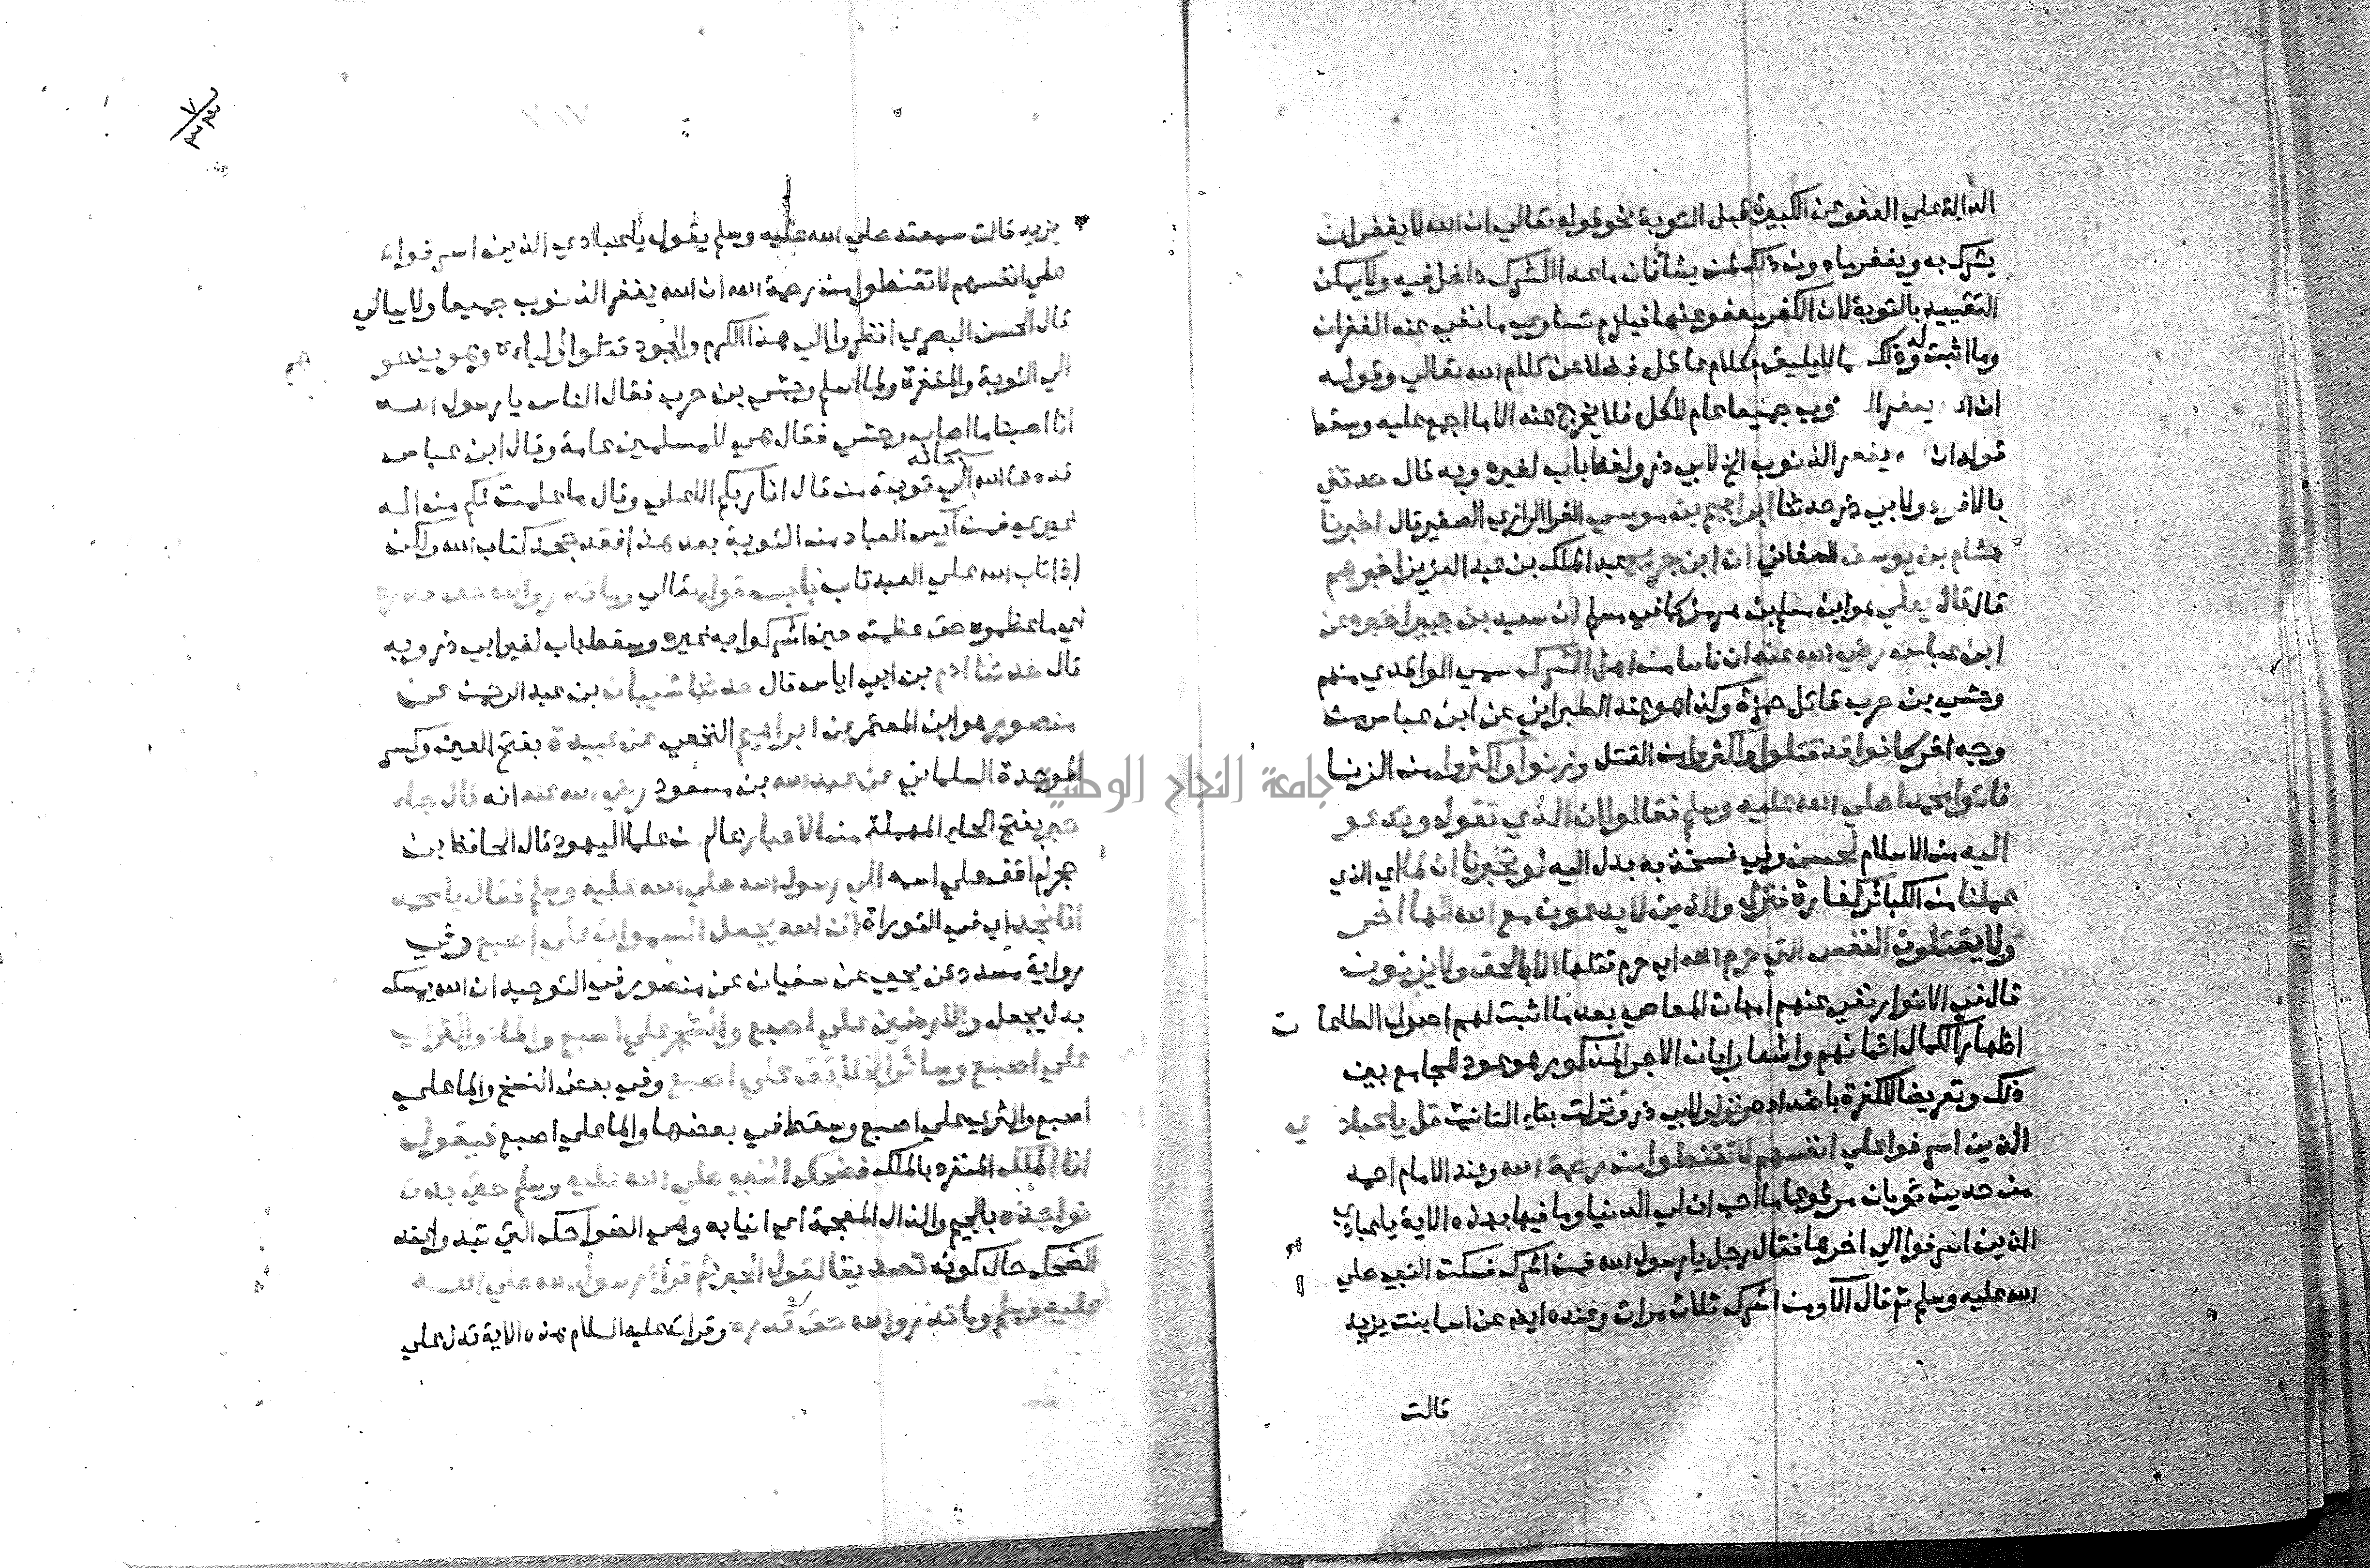 الدالة علي العفو عن الكبيرة قبل التوبة نحو قوله تعالي ان الله لا يغفر ان
يشرك به ويغفر ما دون ذلك لمن يشا فان ما عدا الشرك داخل فيه ولا يمكن
التقييد بالتوبة لان الكفر معفو عنها فيلزم تساوي ما نفي عنه الغفران
وما اثبت له وذلك مما لا يليق بكلام عاقل فضلا عن كلام الله تعالي وقوله
ان يغفر جميعا عام للكل فلا يخرج عنه الا ما اجمع عليه وسقط
قوله ان يغفر الذنوب الخ لابي ذر ولفظ باب لغيره وبه قال حدثني
بالافراد ولابي ذر حدثنا ابراهيم بن موسي الفرا الرازي الصغير قال اخبرنا
هشام بن يوسف الصنعاني ان ابن جريج عبد الملك بن عبد العزيز اخبرهم
قال قال يعلي هو ابن مسلم بن هرمز كما في مسلم ان سعيد بن جبير اخبره عن
ابن عباس رضي الله عنه ان ناسا من اهل الشرك سمي الواقدي منهم
وحشي بن حرب قاتل حمزة وكذا هو عند الطبراني عن ابن عباس من
وجه اخر كانوا قد قتلوا واكثروا من القتل وزنوا واكثروا من الزنا
فاتوا محمدا صلي الله عليه وسلم فقالوا ان الذي تقول وتدعو
اليه من الاسلام لحسن وفي نسخة به بدل اليه لو تخبرنا ان لما اي الذي
عملنا من الكبائر كفارة فنزل والذين لا يدعون مع الله الها اخر
ولا يقتلون النفس التي حرم الله اي حرم قتلها الا بالحق ولا يزنون
قال في الانوار نفي عنهم امهات المعاصي بعد ما اثبت لهم اصول الطاعات
اظهارا لكمال ايمانهم واشعارا بان الاجر المذكور موعود للجامع بين
ذلك وتعريضا للكفرة باضداده ونزل ولابي ذر ونزلت بتاء التانيث قل يا عبادي
الذين اسرفوا علي انفسهم لا تقنطوا من رحمة الله وعند الامام احمد
من حديث ثوبان مرفوعا ما احب ان لي الدنيا وما فيها بهذه الاية يا عبادي
الذين اسرفوا الي اخرها فقال رجل يا رسول الله فمن اشرك فسكت النبي صلي
الله عليه وسلم ثم قال الا ومن اشرك ثلاث مرات وعنده ايضا عن اسما بنت يزيد
قالت
يزيد قالت سمعته صلي الله عليه وسلم يقول يا عبادي الذين اسرفوا
علي انفسهم لا تقنطوا من رحمة الله ان الله يغفر الذنوب جميعا ولا يبالي
قال الحسن البصري انظروا الي هذا الكرم والجود قتلوا اولياءه وهو يدعو
الي التوبة والمغفرة ولما اسلم وحشي بن حرب فقال الناس يا رسول الله
انا اصبنا ما اصاب وحشي فقال هي للمسلمين عامة وقال ابن عباس
قد دعا الله سبحانه الي توبته من قال انا ربكم الاعلي وقال ما علمت لكم من اله
غيري فمن آيس العباد من التوبة بعد هذا فقد جحد كتاب الله ولكن
اذا تاب الله علي العبد تاب باب قوله تعالي وما قدروا الله حق قدره
اي ما عظموه حق عظمته حين اشركوا به غيره وسقط باب لغير ابي ذر وبه
قال حدثنا ادم بن ابي اياس قال حدثنا شيبان بن عبد الرحمن عن
منصور هو ابن المعتمر عن ابراهيم النخعي عن عبيدة بفتح العين وكسر
الموحدة السلماني عن عبد الله بن مسعود رضي الله عنه انه قال جاء
حبر بفتح الحاء المهملة من الاحبار عالم من علما اليهود قال الحافظ بن
حجر لم اقف علي اسمه الي رسول الله صلي الله عليه وسلم فقال يا محمد
انا نجد اي في التوراة ان الله يجعل السموات علي اصبع وفي
رواية مسدد عن يحيي عن سفيان عن منصور في التوحيد ان الله يمسك
بدل يجعل والارضين علي اصبع والشجر علي اصبع والماء والثري
علي اصبع وسائر الخلائق علي اصبع وفي بعض النسخ والما علي
اصبع والثري علي اصبع وسقط في بعضها والما علي اصبع فيقول
انا الملك المنفرد بالملك فضحك النبي صلي الله عليه وسلم حتي بدت
نواجذه بالجيم والذال المعجمة اي انيابه وهي الضواحك التي تبدو عند
الضحك حال كونه تصديقا لقول الحبر ثم قرا رسول الله صلي الله
عليه وسلم وما قدروا الله حق قدره وقراته عليه السلام هذه الاية تدل علي
جامعة النجاح الوطنية